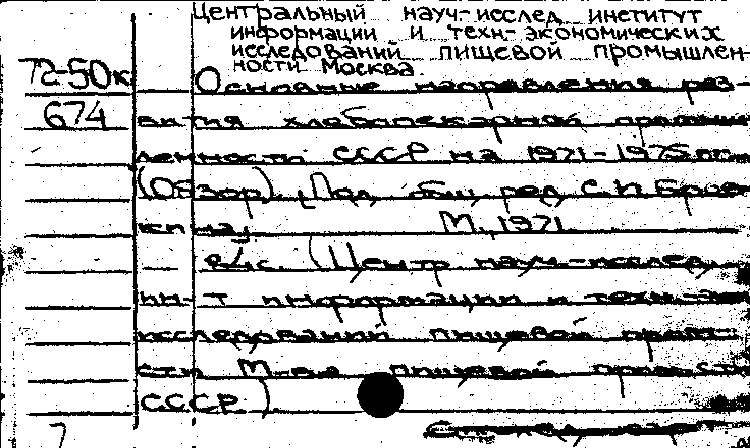 Центральный науч-исслед институт
информации и техн-экономических
исследований пищевой промышлен-
ности Москва
72-50к
Основные направления раз-
674
вития хлебопекарной промыш-
ленности СССР на 1971-1975 гг.
(Обзор). [Под общ. ред.
М., 1971
с. (Центр. науч.-исслед.
ин-т информации и техн.-эк.
исследований пищевой пром-
сти М-ва пищевой пром-сти
СССР).